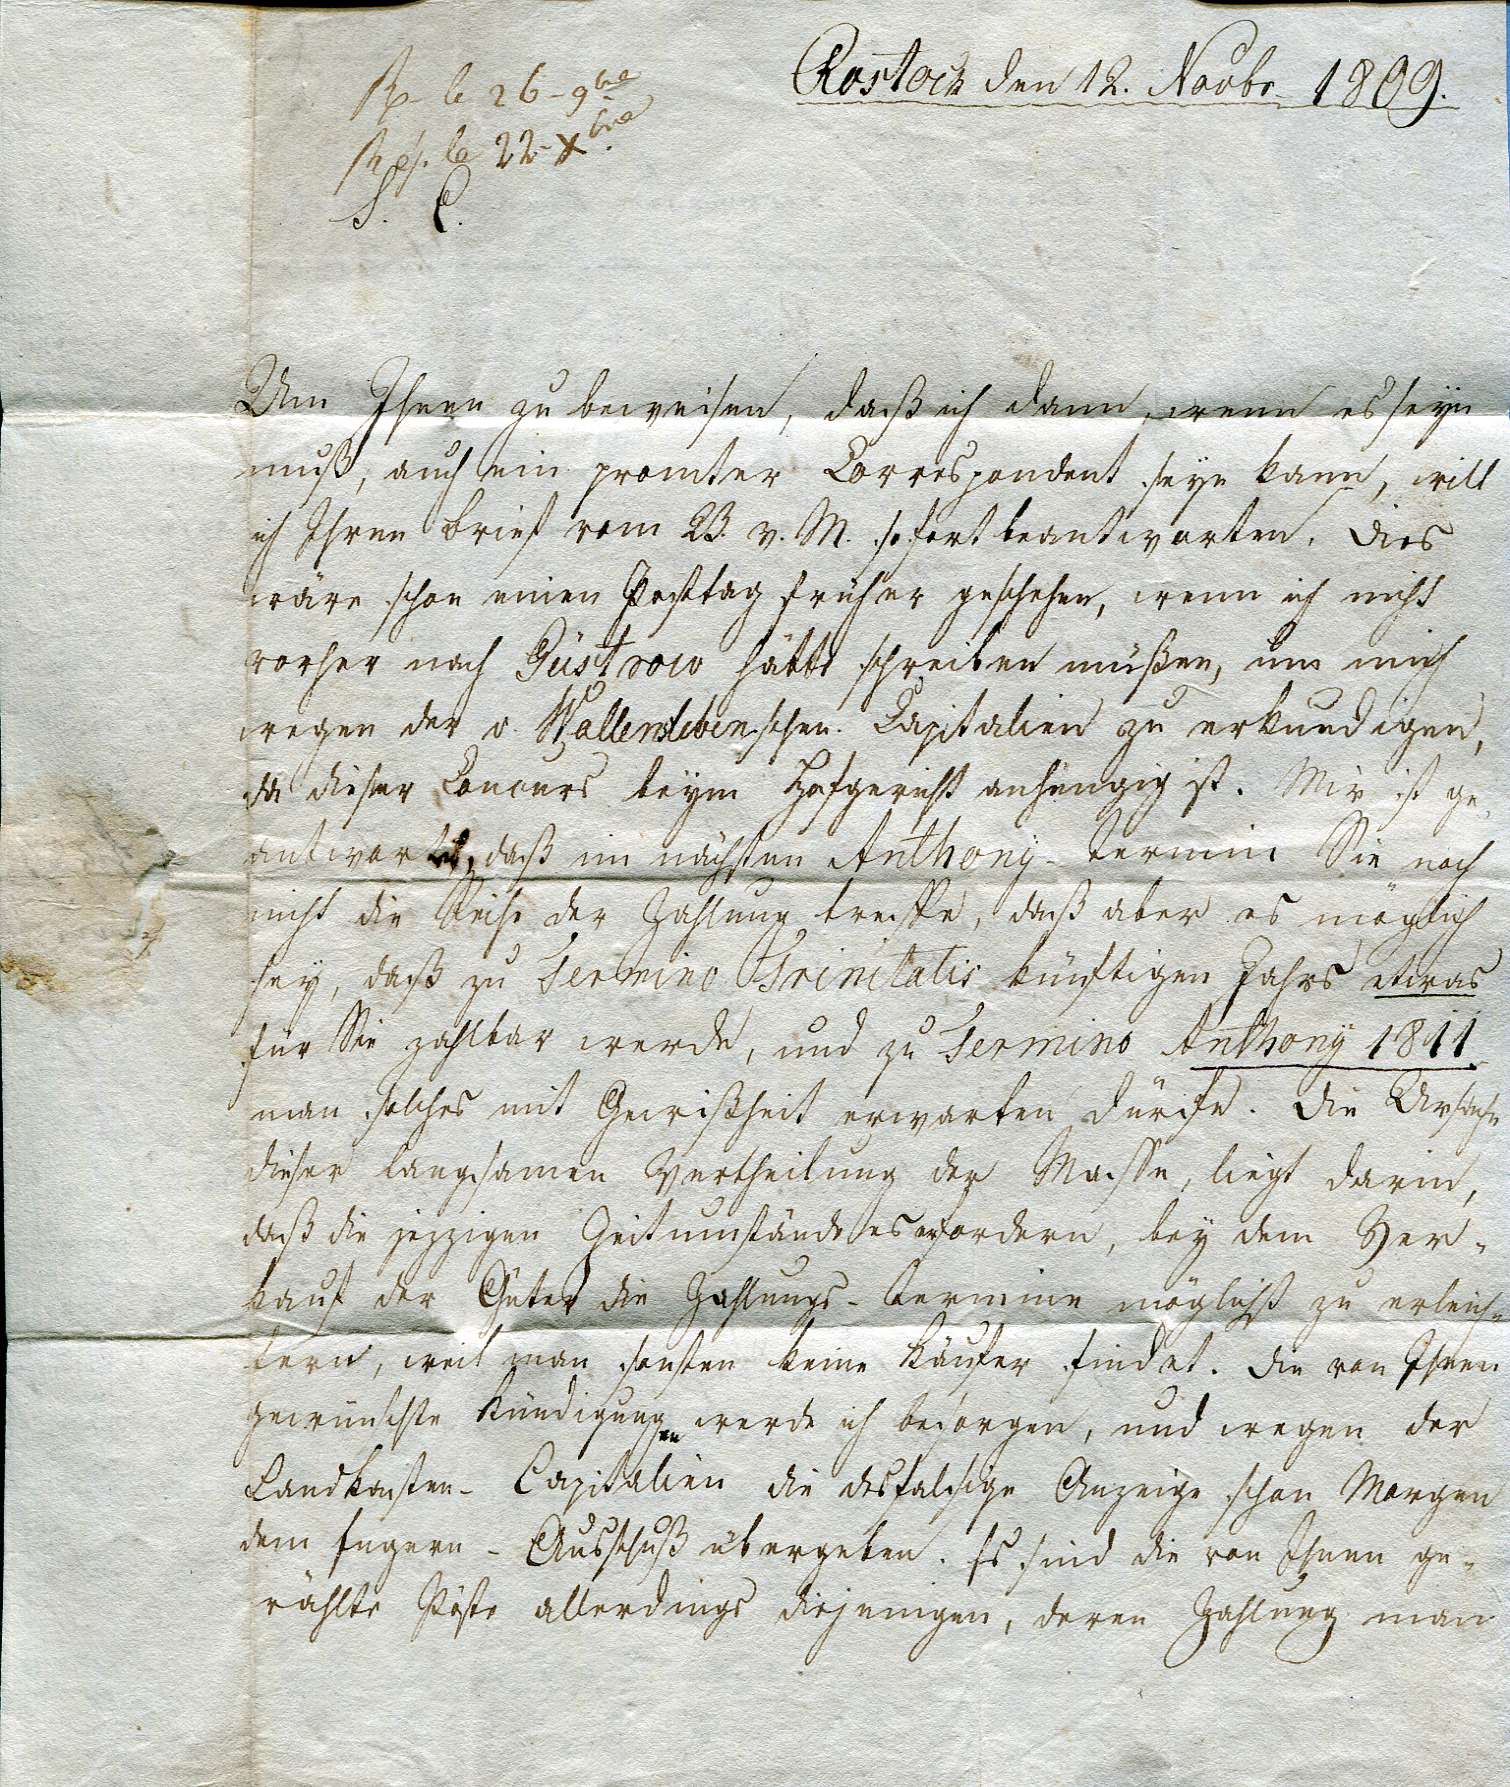 Rostock den 12. Novbr 1809.
R. le 26 - 9bre
Rep. le 22 - Xbre
S. C.
Um Ihnen zu beweisen, daß ich dann, wenn es seyn
muß, auch ein promter Correspondent seyn kann, will
ich Ihren Brief vom 23. v. M. sofort beantworten. Dies
wäre schon einen Posttag früher geschehen, wenn ich nicht
vorher nach Güstrow hätte schreiben müßen, um mich
wegen der v. Wallenslebenschen Capitalien zu erkundigen,
da dieser Concurs beym Hofgericht anhängig ist. Mir ist ge-
antwortet, daß im nächsten Anthony-Termin Sie noch
nicht die Reihe der Zahlung treffe, daß aber es möglich
sey, daß zu Termino Trinitatis künftigen Jahrs etwas
für Sie zahlbar werde, und zu Termino Anthony 1811
man solches mit Gewißheit erwarten dürfe. Die Ursache
dieser langsamen Vertheilung der Masse, liegt darin,
daß die jezzigen Zeitumstände es erfordern, bey dem Ver-
kauf der Güter die Zahlungs-Termine möglichst zu erleich-
tern, weil man sonsten keine Käufer findet. Die von Ihnen
gewünschte Kündigungen werde ich besorgen, und wegen der
Landkasten-Capitalien die desfalsige Anzeige schon Morgen
dem Engern-Ausschuß übergeben. Es sind die von Ihnen ge-
wählte Pöste allerdings diejenigen, deren Zahlung man